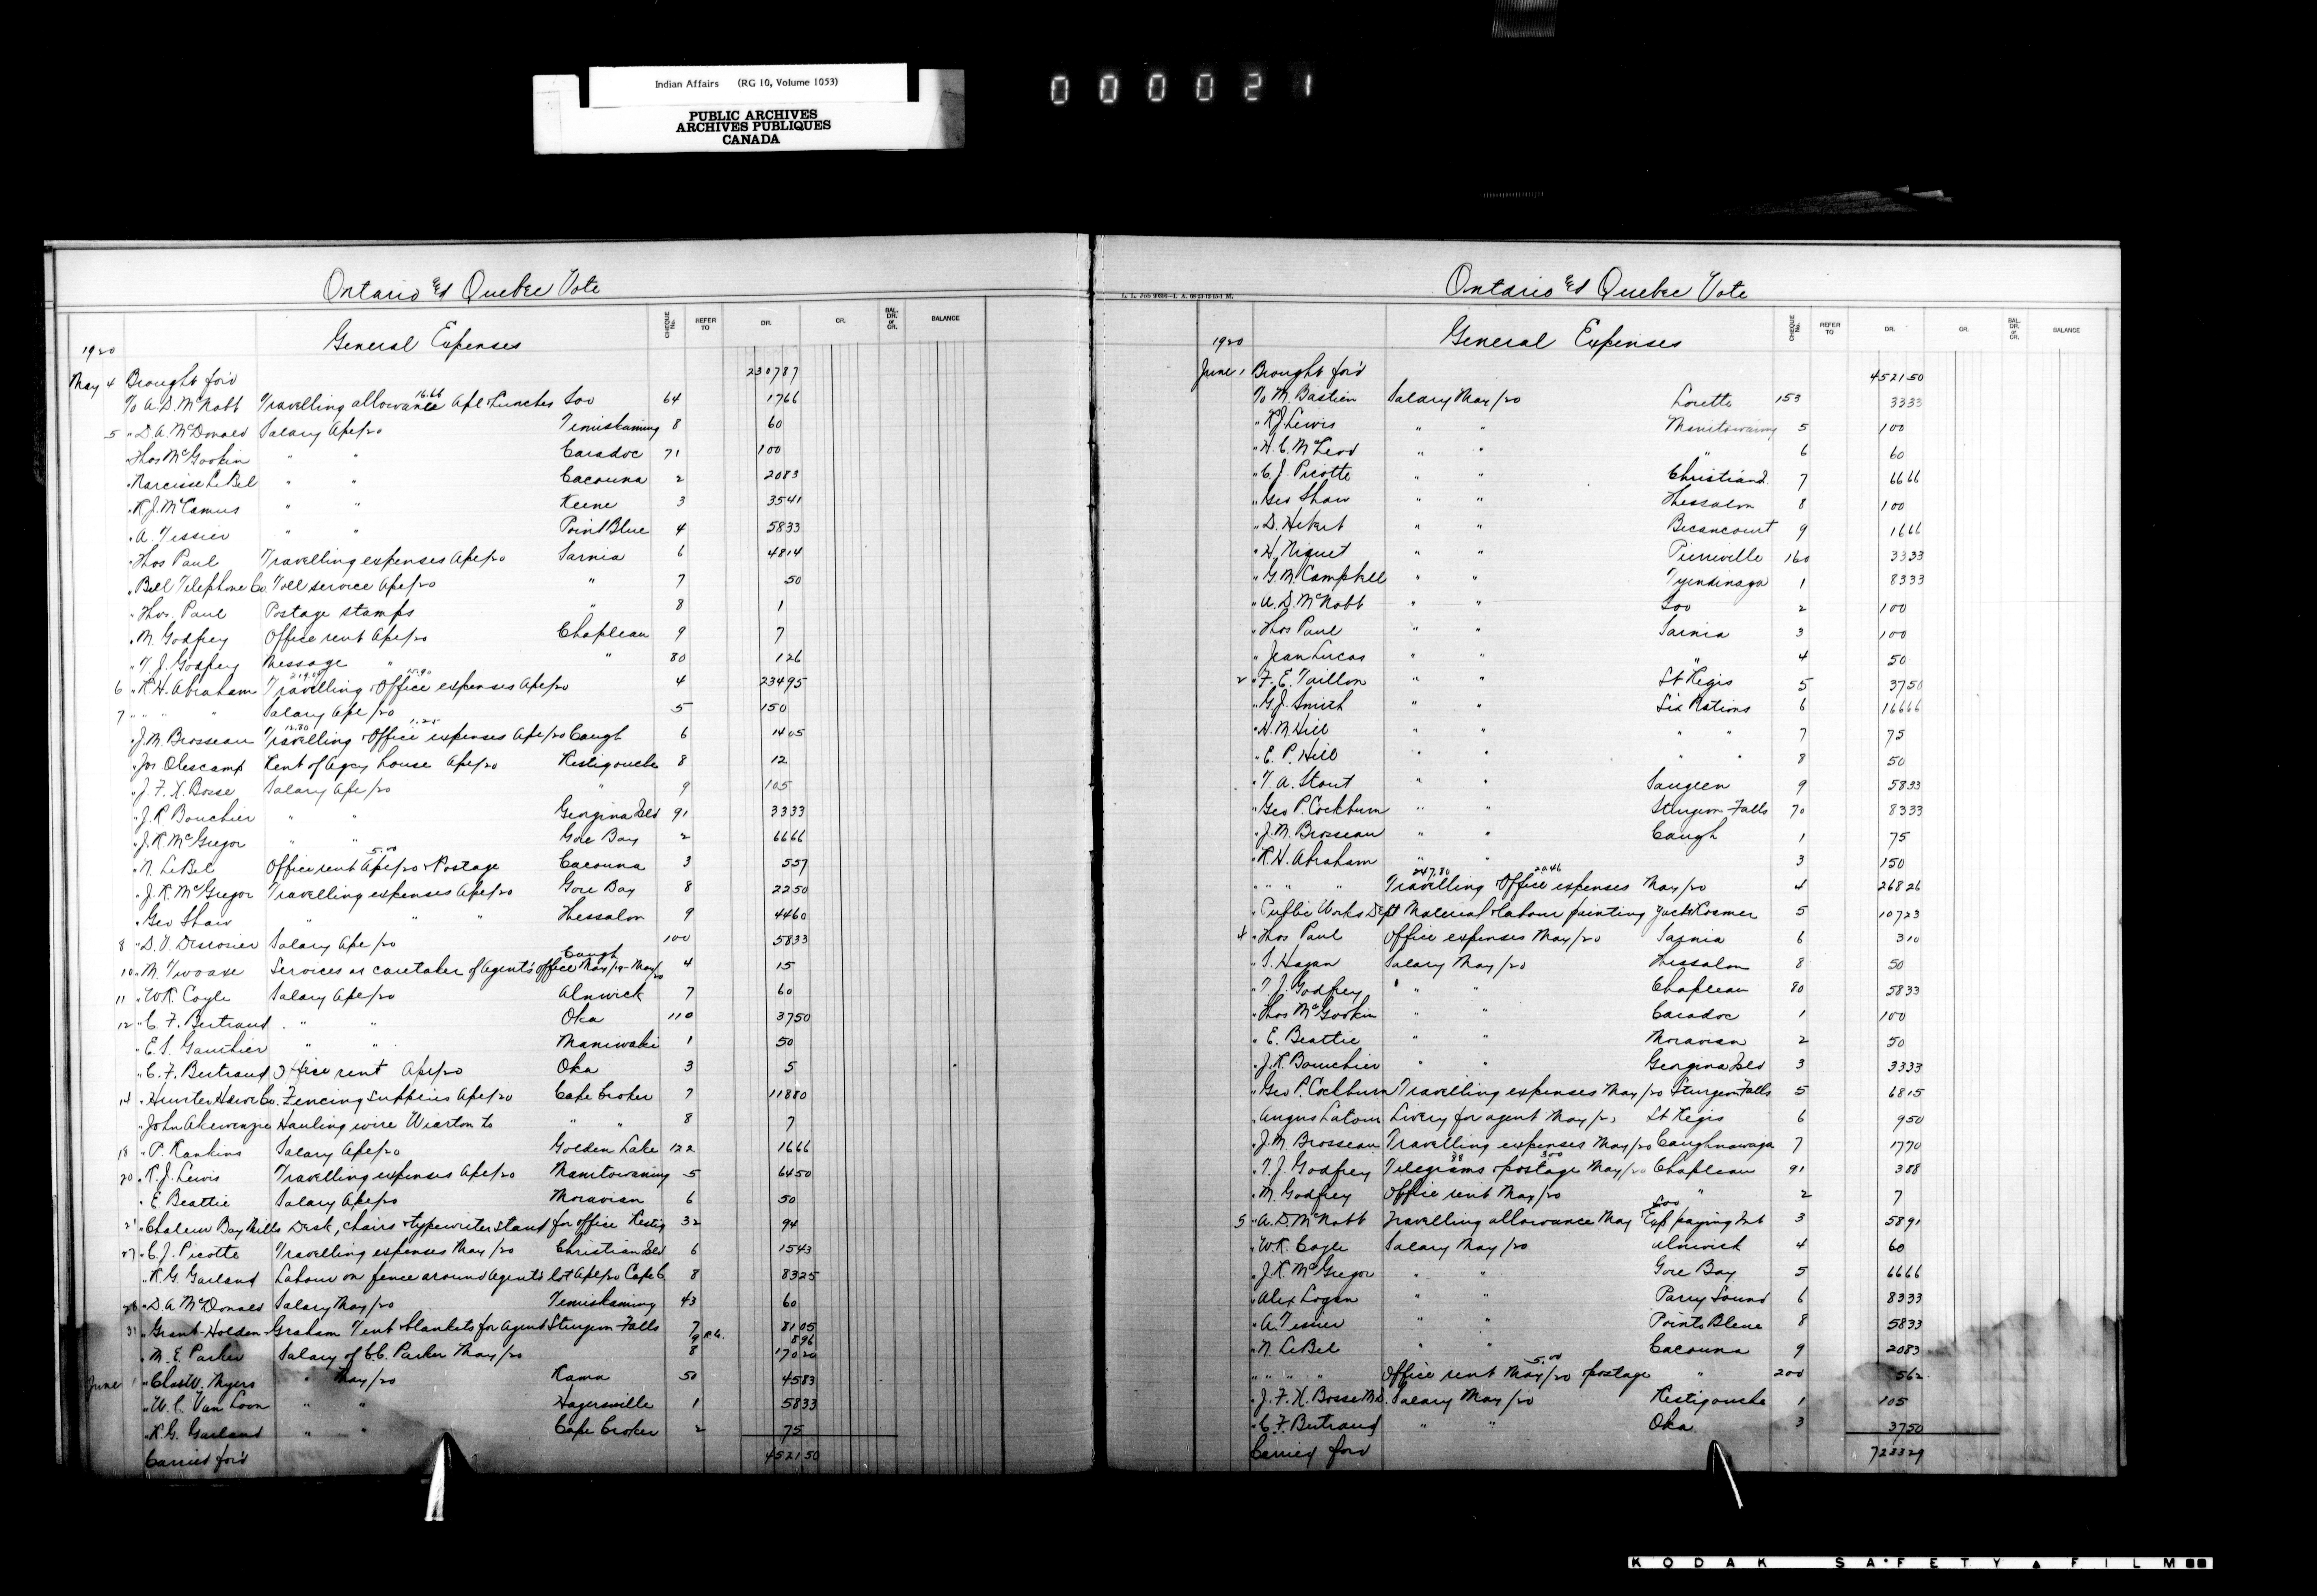 Indian Affairs (RG 10, Volume 1053)
PUBLIC ARCHIVES
ARCHIVES PUBLIQUES
CANADA
000021
Ontario & Quebec Vote
CHEQUE No. REFER TO DR. CR. BAL. DR. or CR. BALANCE
General Expenses
1920
May 4 Brought for'd 2307 87
To A.D. McNabb Travelling allowance 16.66 Apl & Lunches Soo 64 17 66
5 " D.A. McDonald Salary Apl/20 Temiskaming 8 60
" Thos McGookin " " Caradoc 71 100
" Narcisse LeBel " " Cacouna 2 20 83
" R.J. McCamus " " Keene 3 35 41
" A. Tessier " " Point Blue 4 58 33
" Thos Paul Travelling expenses Apl/20 Sarnia 6 48 14
" Bell Telephone Co. Toll service Apl/20 " 7 50
" Thos. Paul Postage stamps " 8 1
" M. Godfrey Office rent Apl/20 Chapleau 9 7
" T.J. Godfrey Message " " 80 1 26
6 " R.H. Abraham Travelling 219.05 & Office 15.90 expenses Apl/20 4 234 95
7 " " " Salary Apl/20 5 150
" J.M. Brosseau Travelling 12.80 & Office 1.25 expenses Apl/20 Caugh 6 14 05
" Jos Olescamp Rent of Agcy house Apl/20 Restigouche 8 12
" J.F.X. Bosse Salary Apl/20 " 9 105
" J.R. Bourchier " " Georgina Isld 91 33 33
" J.R. McGregor " " Gore Bay 2 66 66
" N. LeBel Office rent Apl/20 5.00 & Postage Cacouna 3 5 57
" J.R. McGregor Travelling expenses Apl/20 Gore Bay 8 22 50
" Geo Shaw " " " Thessalon 9 44 60
8 " D.T. Desrosier Salary Apl/20 100 58 33
10 " M. Services as caretaker of Agent's office Caugh May/19 - May/20 4 15
11 " W.R. Coyle Salary Apl/20 Alnwick 7 60
12 " C.F. Bertrand " " Oka 110 37 50
" E.S. Gauthier " " Maniwaki 1 50
" C.F. Bertrand Office rent Apl/20 Oka 3 5
14 " Hunter Hdwe Co. Fencing supplies Apl/20 Cape Croker 7 118 80
" John Akewenzie Hauling wire Wiarton to " " 8 7
18 " P. Rankins Salary Apl/20 Golden Lake 122 16 66
20 " R.J. Lewis Travelling expenses Apl/20 Manitowaning 5 64 50
" E. Beattie Salary Apl/20 Moravian 6 50
21 " Chaleur Bay Mills Desk, chairs & typewriter stand for office Restig 32 94
27 " C.J. Picotte Travelling expenses May/20 Christian Isld 6 15 43
" R.G. Garland Labour on fence around Agent's lot Apl/20 Cape C. 8 83 25
28 " D.A. McDonald Salary May/20 Temiskaming 43 60
31 " Grant-Holden-Graham Tent & blankets for agent Sturgeon Falls 7 81 05
9 R.A. 8 96
" M.E. Parker Salary of C.C. Parker May/20 8 170 20
June 1 " Chas W. Myers " May/20 Rama 50 45 83
" W.C. Van Loon " " Hagersville 1 58 33
" R.G. Garland " " Cape Croker 2 75
Carried for'd 4521 50
L. L. Job
Ontario & Quebec Vote
CHEQUE No. REFER TO DR. CR. BAL. DR. or CR. BALANCE
General Expenses
1920
June 1 Brought for'd 4521 50
To M. Bastien Salary May/20 Lorette 153 33 33
" R.J. Lewis " " Manitowaning 5 100
" H.C. McLeod " " " 6 60
" C.J. Picotte " " Christian I. 7 66 66
" Geo Shaw " " Thessalon 8 100
" D. Hebert " " Becancourt 9 16 66
" H. Niquet " " Pierreville 160 33 33
" G.M. Campbell " " Tyendinaga 1 83 33
" A.D. McNabb " " Soo 2 100
" Thos Paul " " Sarnia 3 100
" Jean Lucas " " " 4 50
2 " F.E. Taillon " " St Regis 5 37 50
" G.J. Smith " " Six Nations 6 166 66
" H.M. Hill " " " " 7 75
" E.P. Hill " " " " 8 50
" T.A. Stout " " Saugeen 9 58 33
" Geo P. Cockburn " " Sturgeon Falls 70 83 33
" J.M. Brosseau " " Caugh 1 75
" R.H. Abraham " " 3 150
" " " " Travelling 247.80 & Office 20.46 expenses May/20 4 268 26
" Public Works Dept Material & labour painting 5 107 23
4 " Thos Paul Office expenses May/20 Sarnia 6 3 10
" S. Hagan Salary May/20 Thessalon 8 50
" T.J. Godfrey " " Chapleau 80 58 33
" Thos McGookin " " Caradoc 1 100
" E. Beattie " " Moravian 2 50
" J.R. Bourchier " " Georgina Isld 3 33 33
" Geo P. Cockburn Travelling expenses May/20 Sturgeon Falls 5 68 15
" Angus Latour Livery for agent May/20 St Regis 6 9 50
" J.M. Brosseau Travelling expenses May/20 Caughnawaga 7 17 70
" T.J. Godfrey Telegrams 88 & postage 3.00 May/20 Chapleau 91 3 88
" M. Godfrey Office rent May/20 " 2 7
5 " A.D. McNabb Travelling allowance May Exp paying Int Soo 3 58 91
" W.R. Coyle Salary May/20 Alnwick 4 60
" J.R. McGregor " " Gore Bay 5 66 66
" Alex Logan " " Parry Sound 6 83 33
" A. Tessier " " Pointe Bleue 8 58 33
" N. LeBel " " Cacouna 9 20 83
" " " " Office rent May/20 5.00 & postage " 200 5 62
" J.F.X. Bosse M.D. Salary May/20 Restigouche 1 105
" C.F. Bertrand " " Oka 3 37 50
Carried for'd 7233 29
KODAK SAFETY FILM